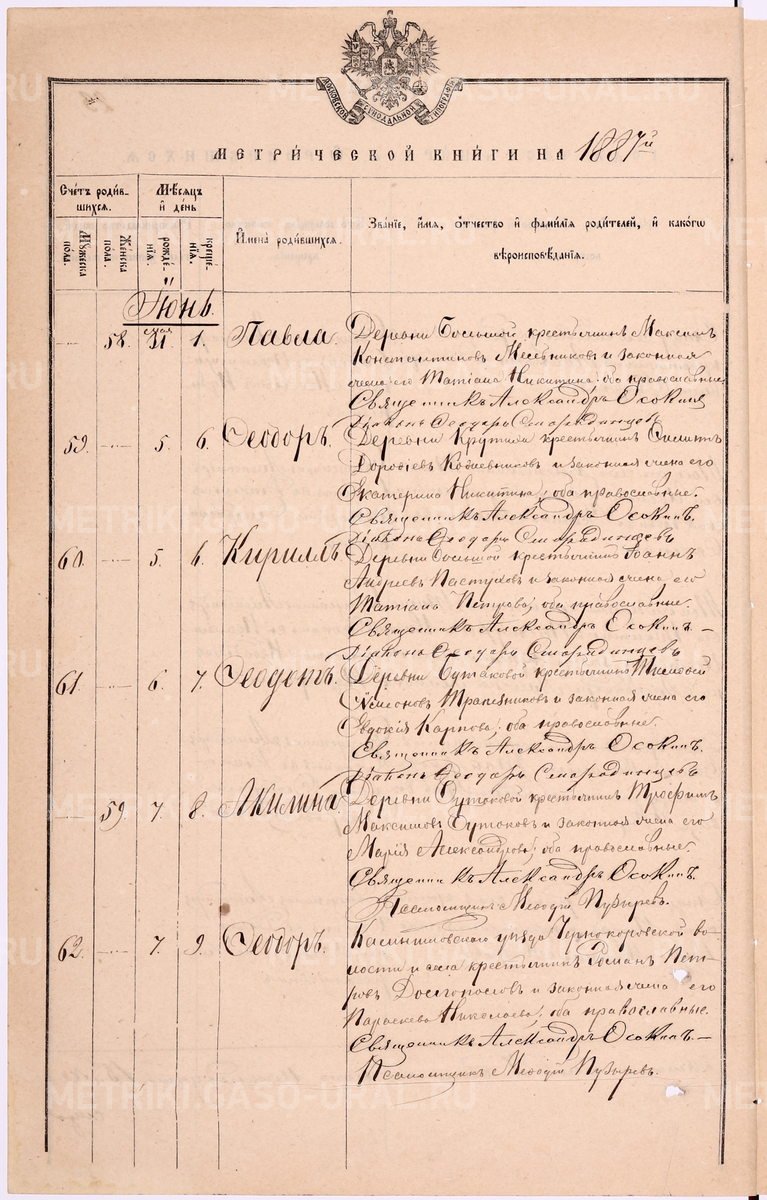 МОСКОВСКОЙ СѴНОДАЛЬНОЙ ТИПОГРАФІИ
МЕТРИ́ЧЕСКОЙ КНИ́ГИ НА 1887й
Сче́тъ роди́вшихся.
Мѣ́сяцъ и҆ де́нь
Му́жеска по́ла.
Же́нска по́ла.
рожде́нїѧ.
креще́нїѧ.
И҆мена̀ роди́вшихся.
Зва́нїе, и҆́мѧ, ѻ҆́тчество и҆ фами́лїѧ роди́телей, и҆ како́гѡ
вѣроисповѣ́данїѧ.
Іюнь.
— 58. мая 31 1. Павла. Деревни Большой крестьянинъ Максимъ
Константиновъ Мельниковъ и законная
жена его Татіана Никитина; оба православные.
Священникъ Александръ Осокинъ
Діаконъ Ѳеодоръ Смородинцевъ
59. — 5. 6. Ѳеодоръ. Деревни Крутиха крестьянинъ Филиппъ
Дороѳіевъ Кобневниковъ и законная жена его
Екатерина Никитина; оба православные.
Священникъ Александръ Осокинъ.
Діаконъ Ѳеодоръ Смородинцевъ
60. — 5. 6. Кириллъ Деревни Большой крестьянинъ Іоаннъ
Андреевъ Пастуховъ и законная жена его
Татіана Петрова; оба православные.
Священникъ Александръ Осокинъ. —
Діаконъ Ѳеодоръ Смородинцевъ
61. — 6. 7. Ѳеодотъ. Деревни Бутаковой крестьянинъ Тимоѳей
Трапезниковъ и законная жена его
Евдокія Карпова; оба православные.
Священникъ Александръ Осокинъ.
Діаконъ Ѳеодоръ Смородинцевъ
— 59. 7. 8. Акилина. Деревни Бутаковой крестьянинъ Трофимъ
Максимовъ Бутаковъ и законная жена его
Марія Александрова; оба православные.
Священникъ Александръ Осокинъ.
Псаломщикъ Меѳодій Пузыревъ.
62. — 7. 9. Ѳеодоръ. Камышловскаго уѣзда Чернокоровской во-
лости и села крестьянинъ Романъ Пет-
ровъ Долгополовъ и законная жена его
Параскева Николаева; оба православные.
Священникъ Александръ Осокинъ. —
Псаломщикъ Меѳодій Пузыревъ.
METRIKI.GASO-URAL.RU